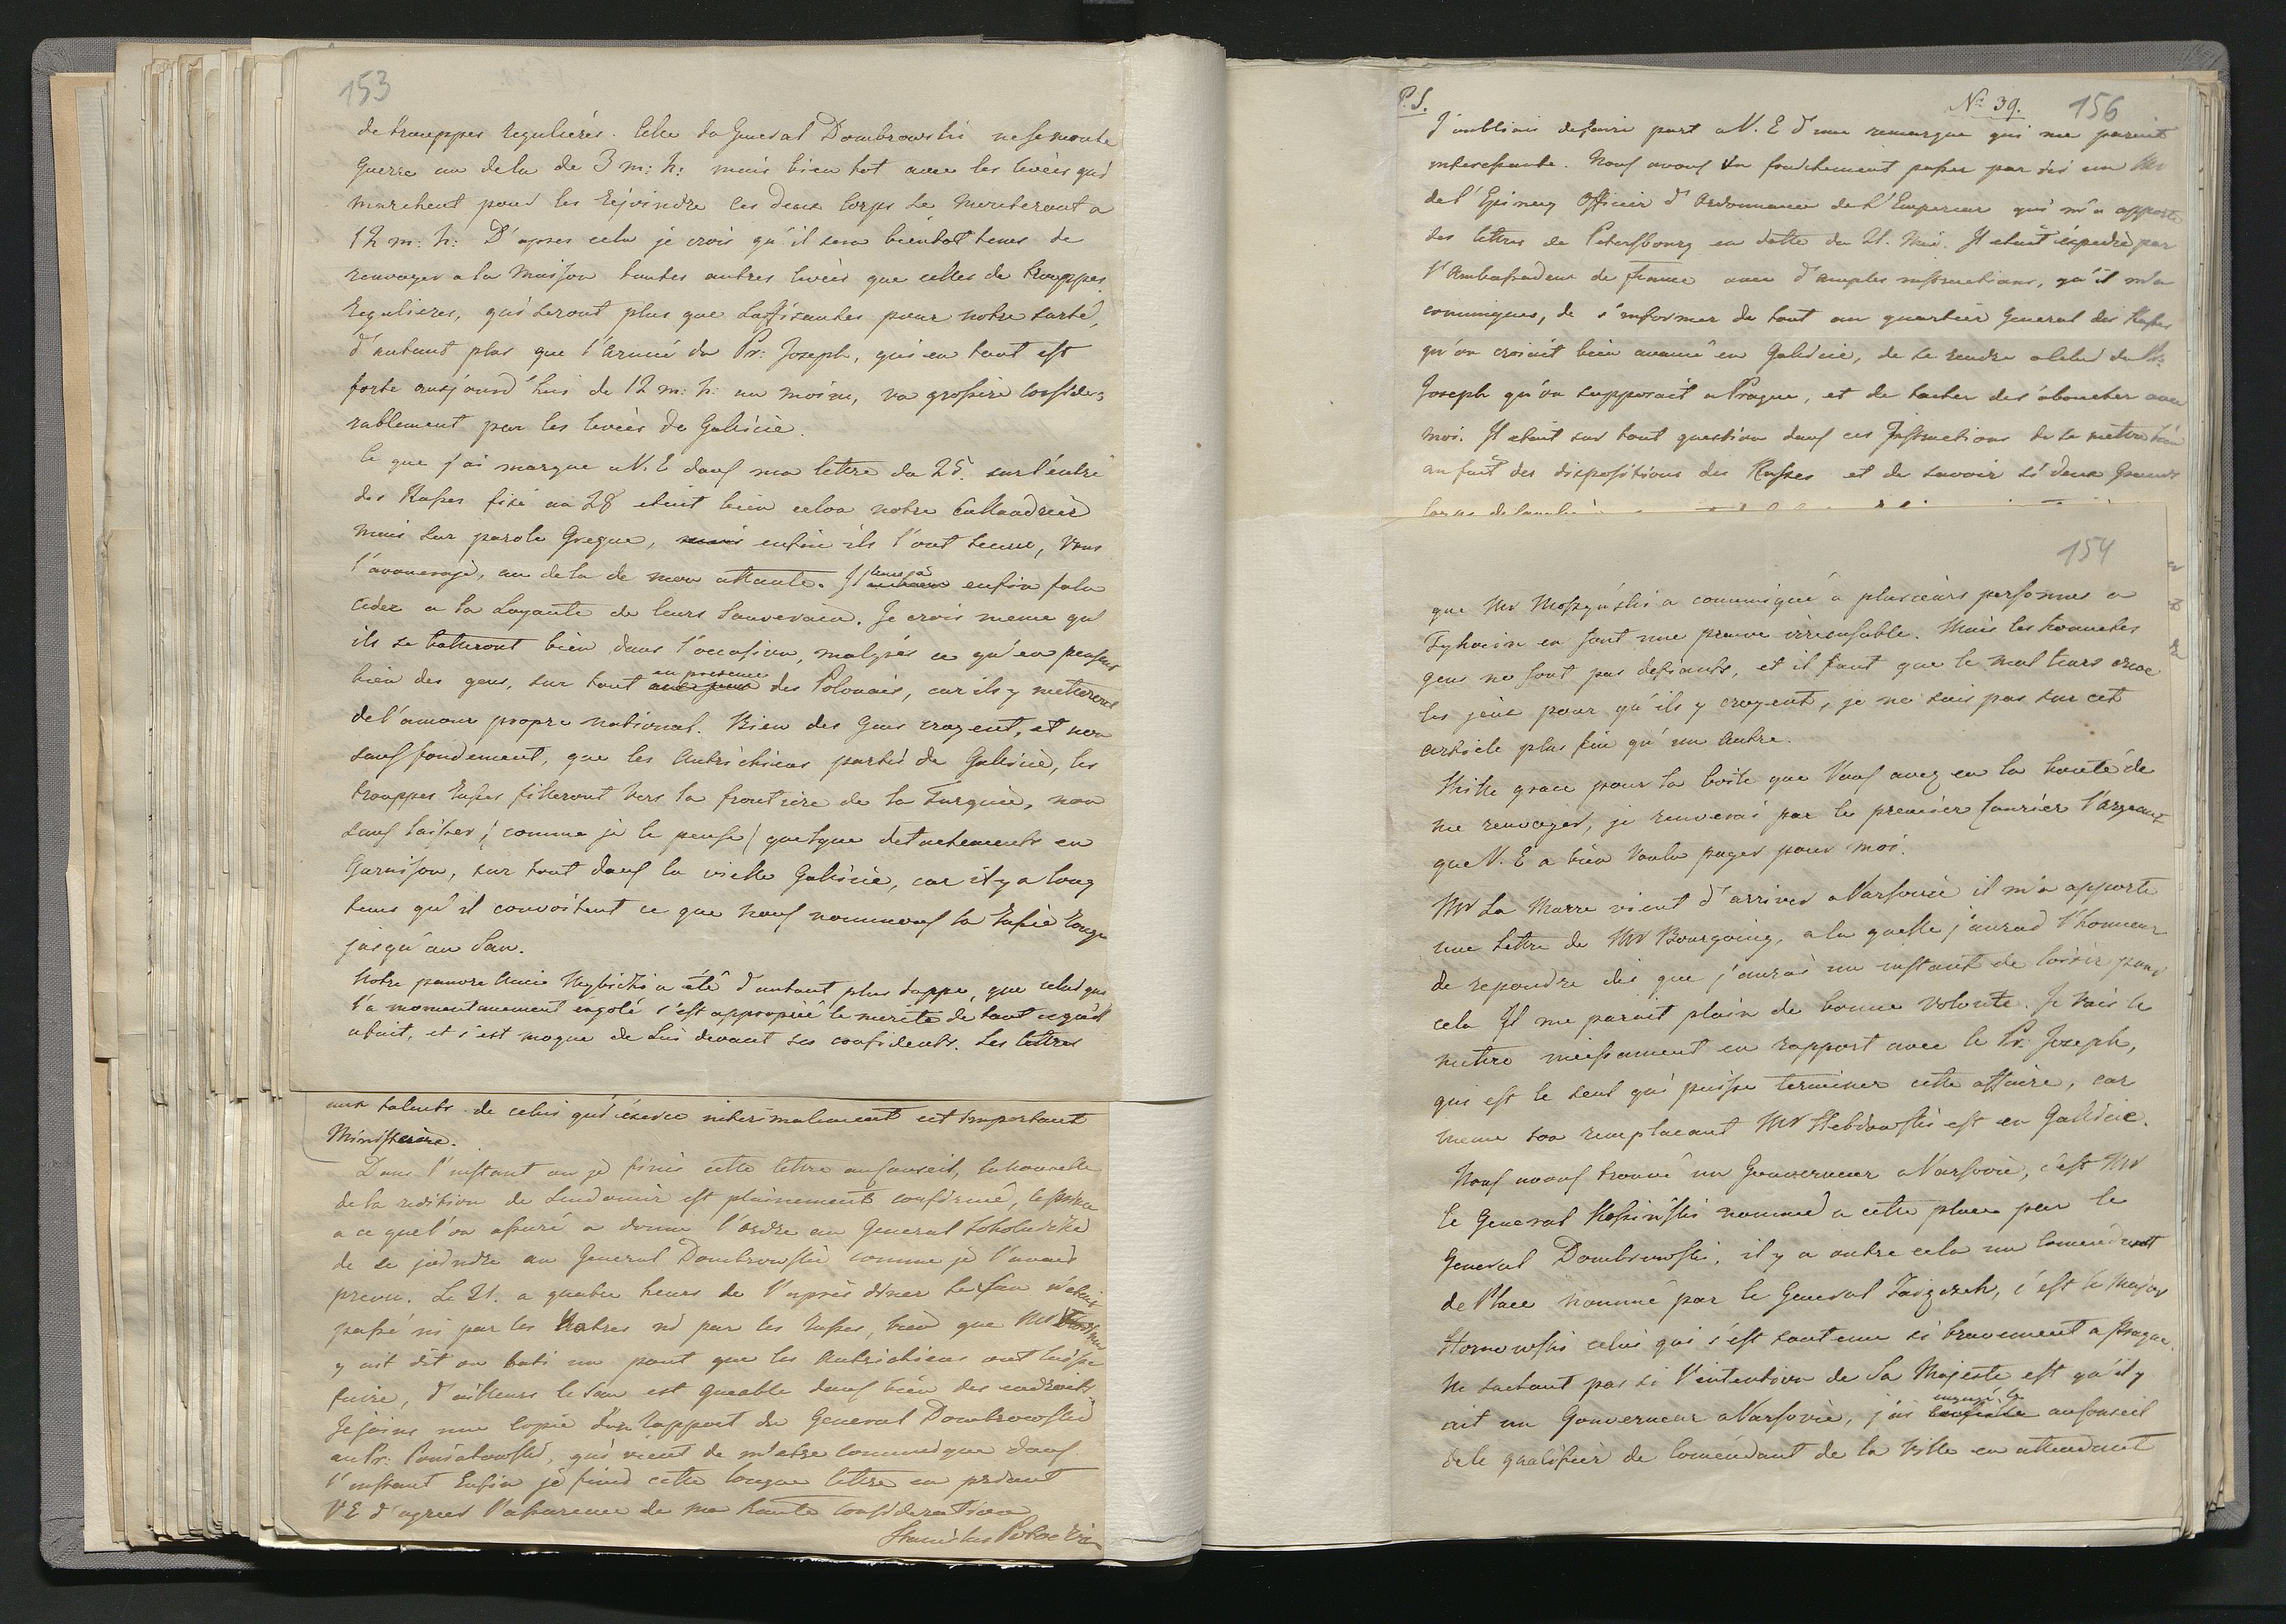 153
de trouppes regulieres. Celle du General Dombrowski ne se monte
guerre au dela de 3 m: h: mais bien tot avec les levées qui
marchent pour les rejoindre ces deux Corps se monteront a
12 m: h: D'apres cela je crois qu'il sera bientot tems de
renvoyer a la Maison toutes autres levées que celles de trouppes
regulieres, qui seront plus que suffisantes pour notre sureté,
d'autant plus que l'armée du Pr: Joseph, qui en tout est
forte aujourd'hui de 12 m: h: au moins, va grossire considé-
rablement par les levées de Galicie.
Ce que j'ai marque a V. E dans ma lettre du 25. sur l'entré
des Russes fixé au 28 etoit bien selon notre Callandrier
mais sur parole Greque, mais enfin ils l'ont tenue, Vous
l'avouerage, au dela de mon attente. Il enfin falu
ceder a la Loyauté de leurs Souverain. Je crois meme qu'
ils se batteront bien dans l'occasion, malgrés ce qu'en pensent
en presence
bien des gens, sur tout des Polonais, car ils y metteront
de l'amour propre national. Bien des Gens croyent, et non
sans fondement, que les Autrichiens partis de Galicie, les
trouppes russes filleront vers la frontiere de la Turquie, non
sans laisser / comme je le pense / quelque detachements en
Garnison, sur tout dans la vielle Galicie, car il y a long
tems qu'il convoitent ce que nous nommons la Russie Rouge
jusqu'au San.
Notre pauvre Ami Wybicki a été d'autant plus duppe, que celui qui
l'a momentanement s'est approprié le merite de tout ce qu'il
et s'est moque de Lui devant ses confidents. Les lettres
aux talents de celui qui exerce interimalement cet important
Ministeire.
Dans l'instant ou je finis cette lettre au Conseil, la nouvelle
de la redition de Sendomir est pleinement confirmé, le Prince
a ce que l'on assuré a donne l'ordre au General Sokolnicki
de se joindre au General Dombrowski comme je l'avais
prevu. Le 21. a quatre heurs de l'aprés diner le San n'etait
passé ni par les Notres ni par les Russes, bien que Mr
y ait dit on bati un pont que les Autrichiens ont laissé
faire, d'ailleurs le San est gueable dans bien des endroits.
Je joins une copie d'un Rapport du General Dombrowski
au Pr: Poniatowski, qui vient de m'etre Communique dans
l'instant Enfin je finis cette longue lettre en priant
V E d'agreer l'assurence de ma haute consideration
Stanislas
P. S.
No 39. 156
J'oubliais de faire part a V. E d'une remarque qui me parait
interessante. Nous avons vu passer par ici un Mr
de l'Epinay Officier d'Ordonnance de l'Empereur qui m'a apporte
des lettres de Petersbourg en datte du 21. Mai. Il etait expedié par
l'Ambassadeur de france avec d'amples instructions, qu'il m'a
comuniques, de s'informer de tout au quartier General des Russes
qu'on croiait bien avancé en Galicie, de se rendre a celui du Pr:
Joseph qu'on supposait a Prague, et de tacher de s'aboucher avec
moi. Il etait sur tout question dans ces Instructions de se mettre bien
au fait des dispositions des Russes et de savoir si deux Grands
154
que Mr Moszyński a comuniqué a plusieurs personnes a
Tykocin en sont une preuve irrecusable. Mais les honnetes
gens ne sont pas defiants, et il faut que le mal leurs creve
les jeux pour qu'ils y croyent, je ne suis pas sur cet
article plus fin qu'un autre.
Mille grace pour la boite que Vous avez eu la bonté de
me renvoyer, je renverai par le premier Courier l'argent
que V. E a bien voulu payer pour moi.
Mr La Marre vient d'arriver a Varsovie il m'a apporte
une Lettre de Mr Bourgoing, a la quelle j'aurai l'honneur
de repondre dés que j'aurai un instant de loisir pour
cela Il me parait plein de bonne volonte. Je vais le
mettre incessament en rapport avec le Pr: Joseph,
qui est le seul qui puisse terminer cette affaire, car
meme son remplacant Mr Hebdowski est en Galicie.
Nous avons trouvé un Gouverneur a Varsovie, c'est Mr
le General Kossinski nommé a cette place par le
General Dombrowski, il y a outre cela un Comendant
de Place nommé par le General Zaiączek, c'est le Major
Hornowski celui qui s'est soutenu si bravement a Prague.
Ne sachant pas si l'intention de Sa Majeste est qu'il y
ait un Gouverneur a Varsovie, j'ai au Conseil
de le qualifier de Comendant de la Ville en attendant